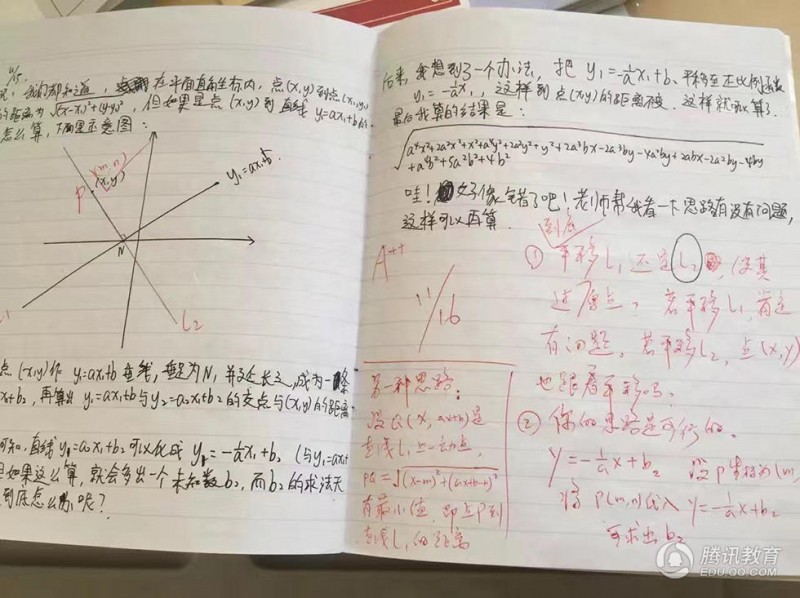 11/15
我们都知道，在平面直角坐标内，点(x,y)到点(x₁,y₁)
的距离为√(x-x₁)²+(y-y₁)²，但如果是点(x,y)到直线 y=ax₁+b的
怎么算，下面是示意图：
(m,n)
P (x,y)
y₁=ax₁+b
N
L1
L2
点(x,y)作 y₁=ax₁+b垂线，垂足为N，并延长之，成为一条
x₁+b₂，再算出 y₁=ax₁+b与y₂=a₂x₁+b₂的交点与(x,y)的距离
可知，直线y₂=a₂x₁+b₂可以化成 y₂=-1/a x₁+b₂（与y₁=ax₁+
但如果这么算，就会多出一个未知数b₂，而b₂的求法天
到底怎么办呢？
后来，我想到了一个办法，把 y₁=-1/a x₁+b₂平移至正比例函数
y₁=-1/a x₁，这样到点(x,y)的距离不变，这样就可以算了。
最后我算的结果是：
√a⁴x²+2a²x²+x²+a⁴y²+2a²y²+y²+2a³bx-2a³by-4a²by+2abx-2a²by-4by
+a⁴b²+5a²b²+4b²
哇！好像错了吧！老师帮我看一下思路有没有问题，
这样可以再算
A⁺⁺
11/16
到底
① 平移L₁还是L₂，使其
过原点？若平移L₁，肯定
有问题，若平移L₂，点(x,y)
也跟着平移吗。
② 你的思路是可行的。
y=-1/a x+b₂ 设P坐标为(m,
将P(m,n)代入y=-1/a x+b₂
可求出b₂
另一种思路：
设Q(x,ax+b)是
直线L₁上一动点，
PQ=√(x-m)²+(ax+b-n)²
有最小值，即点P到
直线L₁的距离
腾讯教育
EDU.QQ.COM